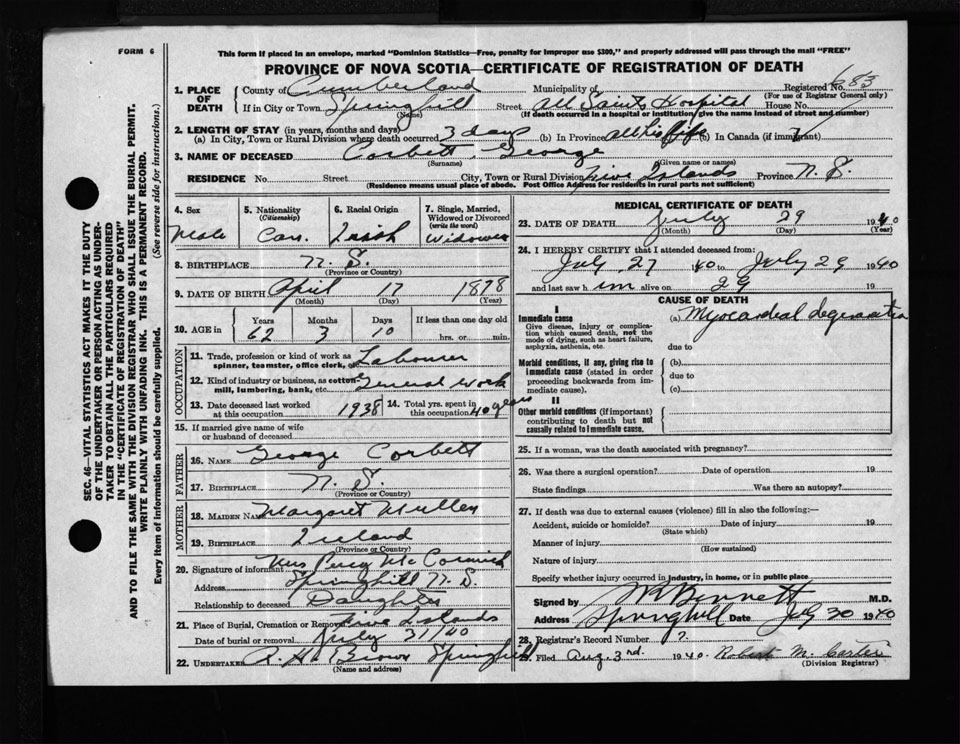 FORM 6
This form if placed in an envelope, marked "Dominion Statistics—Free, penalty for improper use $300," and properly addressed will pass through the mail "FREE"
PROVINCE OF NOVA SCOTIA—CERTIFICATE OF REGISTRATION OF DEATH
Registered No. 683
(For use of Registrar General only)
1. PLACE OF DEATH
County of Cumberland Municipality of
If in City or Town Springhill Street All Saints Hospital House No.
(Name) (If death occurred in a hospital or institution, give the name instead of street and number)
2. LENGTH OF STAY (in years, months and days)
(a) In City, Town or Rural Division where death occurred 3 days (b) In Province all his life (c) In Canada (if immigrant)
3. NAME OF DECEASED Corbett, George
(Surname) (Given name or names)
RESIDENCE No. Street City, Town or Rural Division Five Islands Province N. S.
(Residence means usual place of abode. Post Office Address for residents in rural parts not sufficient)
4. Sex Male
5. Nationality (Citizenship) Can.
6. Racial Origin Irish
7. Single, Married, Widowed or Divorced (write the word) Widower
8. BIRTHPLACE N. S.
(Province or Country)
9. DATE OF BIRTH April 17 1878
(Month) (Day) (Year)
10. AGE in Years Months Days If less than one day old
62 3 10 hrs. or min.
OCCUPATION
11. Trade, profession or kind of work as spinner, teamster, office clerk, etc. Labourer
12. Kind of industry or business, as cotton mill, lumbering, bank, etc. General Work
13. Date deceased last worked at this occupation 1938
14. Total yrs. spent in this occupation 40 years
15. If married give name of wife or husband of deceased
FATHER
16. NAME George Corbett
17. BIRTHPLACE N. S.
(Province or Country)
MOTHER
18. MAIDEN NAME Margaret Mullen
19. BIRTHPLACE Ireland
(Province or Country)
20. Signature of informant Mrs Percy McCormick
Address Springhill N. S.
Relationship to deceased Daughter
21. Place of Burial, Cremation or Removal Five Islands
Date of burial or removal July 31/40
22. UNDERTAKER Brown Springhill
(Name and address)
MEDICAL CERTIFICATE OF DEATH
23. DATE OF DEATH July 29 1940
(Month) (Day) (Year)
24. I HEREBY CERTIFY that I attended deceased from:
July 27 1940 to July 29 1940
and last saw him alive on 29 19
CAUSE OF DEATH
I
Immediate cause
Give disease, injury or complication which caused death, not the mode of dying, such as heart failure, asphyxia, asthenia, etc.
(a) Myocardial degeneration
due to
Morbid conditions, if any, giving rise to immediate cause (stated in order proceeding backwards from immediate cause).
(b)
due to
(c)
II
Other morbid conditions (if important) contributing to death but not causally related to immediate cause.
25. If a woman, was the death associated with pregnancy?
26. Was there a surgical operation? Date of operation 19
State findings Was there an autopsy?
27. If death was due to external causes (violence) fill in also the following:—
Accident, suicide or homicide? Date of injury 19
(State which)
Manner of injury
(How sustained)
Nature of injury
Specify whether injury occurred in industry, in home, or in public place
Signed by Bennett M.D.
Address Springhill Date July 30 1940
28. Registrar's Record Number 7.
29. Filed Aug. 3rd. 1940. Robert M. Carter
(Division Registrar)
SEC. 46—VITAL STATISTICS ACT MAKES IT THE DUTY
OF THE UNDERTAKER OR PERSON ACTING AS UNDER-
TAKER TO OBTAIN ALL THE PARTICULARS REQUIRED
IN THE "CERTIFICATE OF REGISTRATION OF DEATH"
AND TO FILE THE SAME WITH THE DIVISION REGISTRAR WHO SHALL ISSUE THE BURIAL PERMIT.
WRITE PLAINLY WITH UNFADING INK. THIS IS A PERMANENT RECORD.
Every item of information should be carefully supplied. (See reverse side for instructions.)